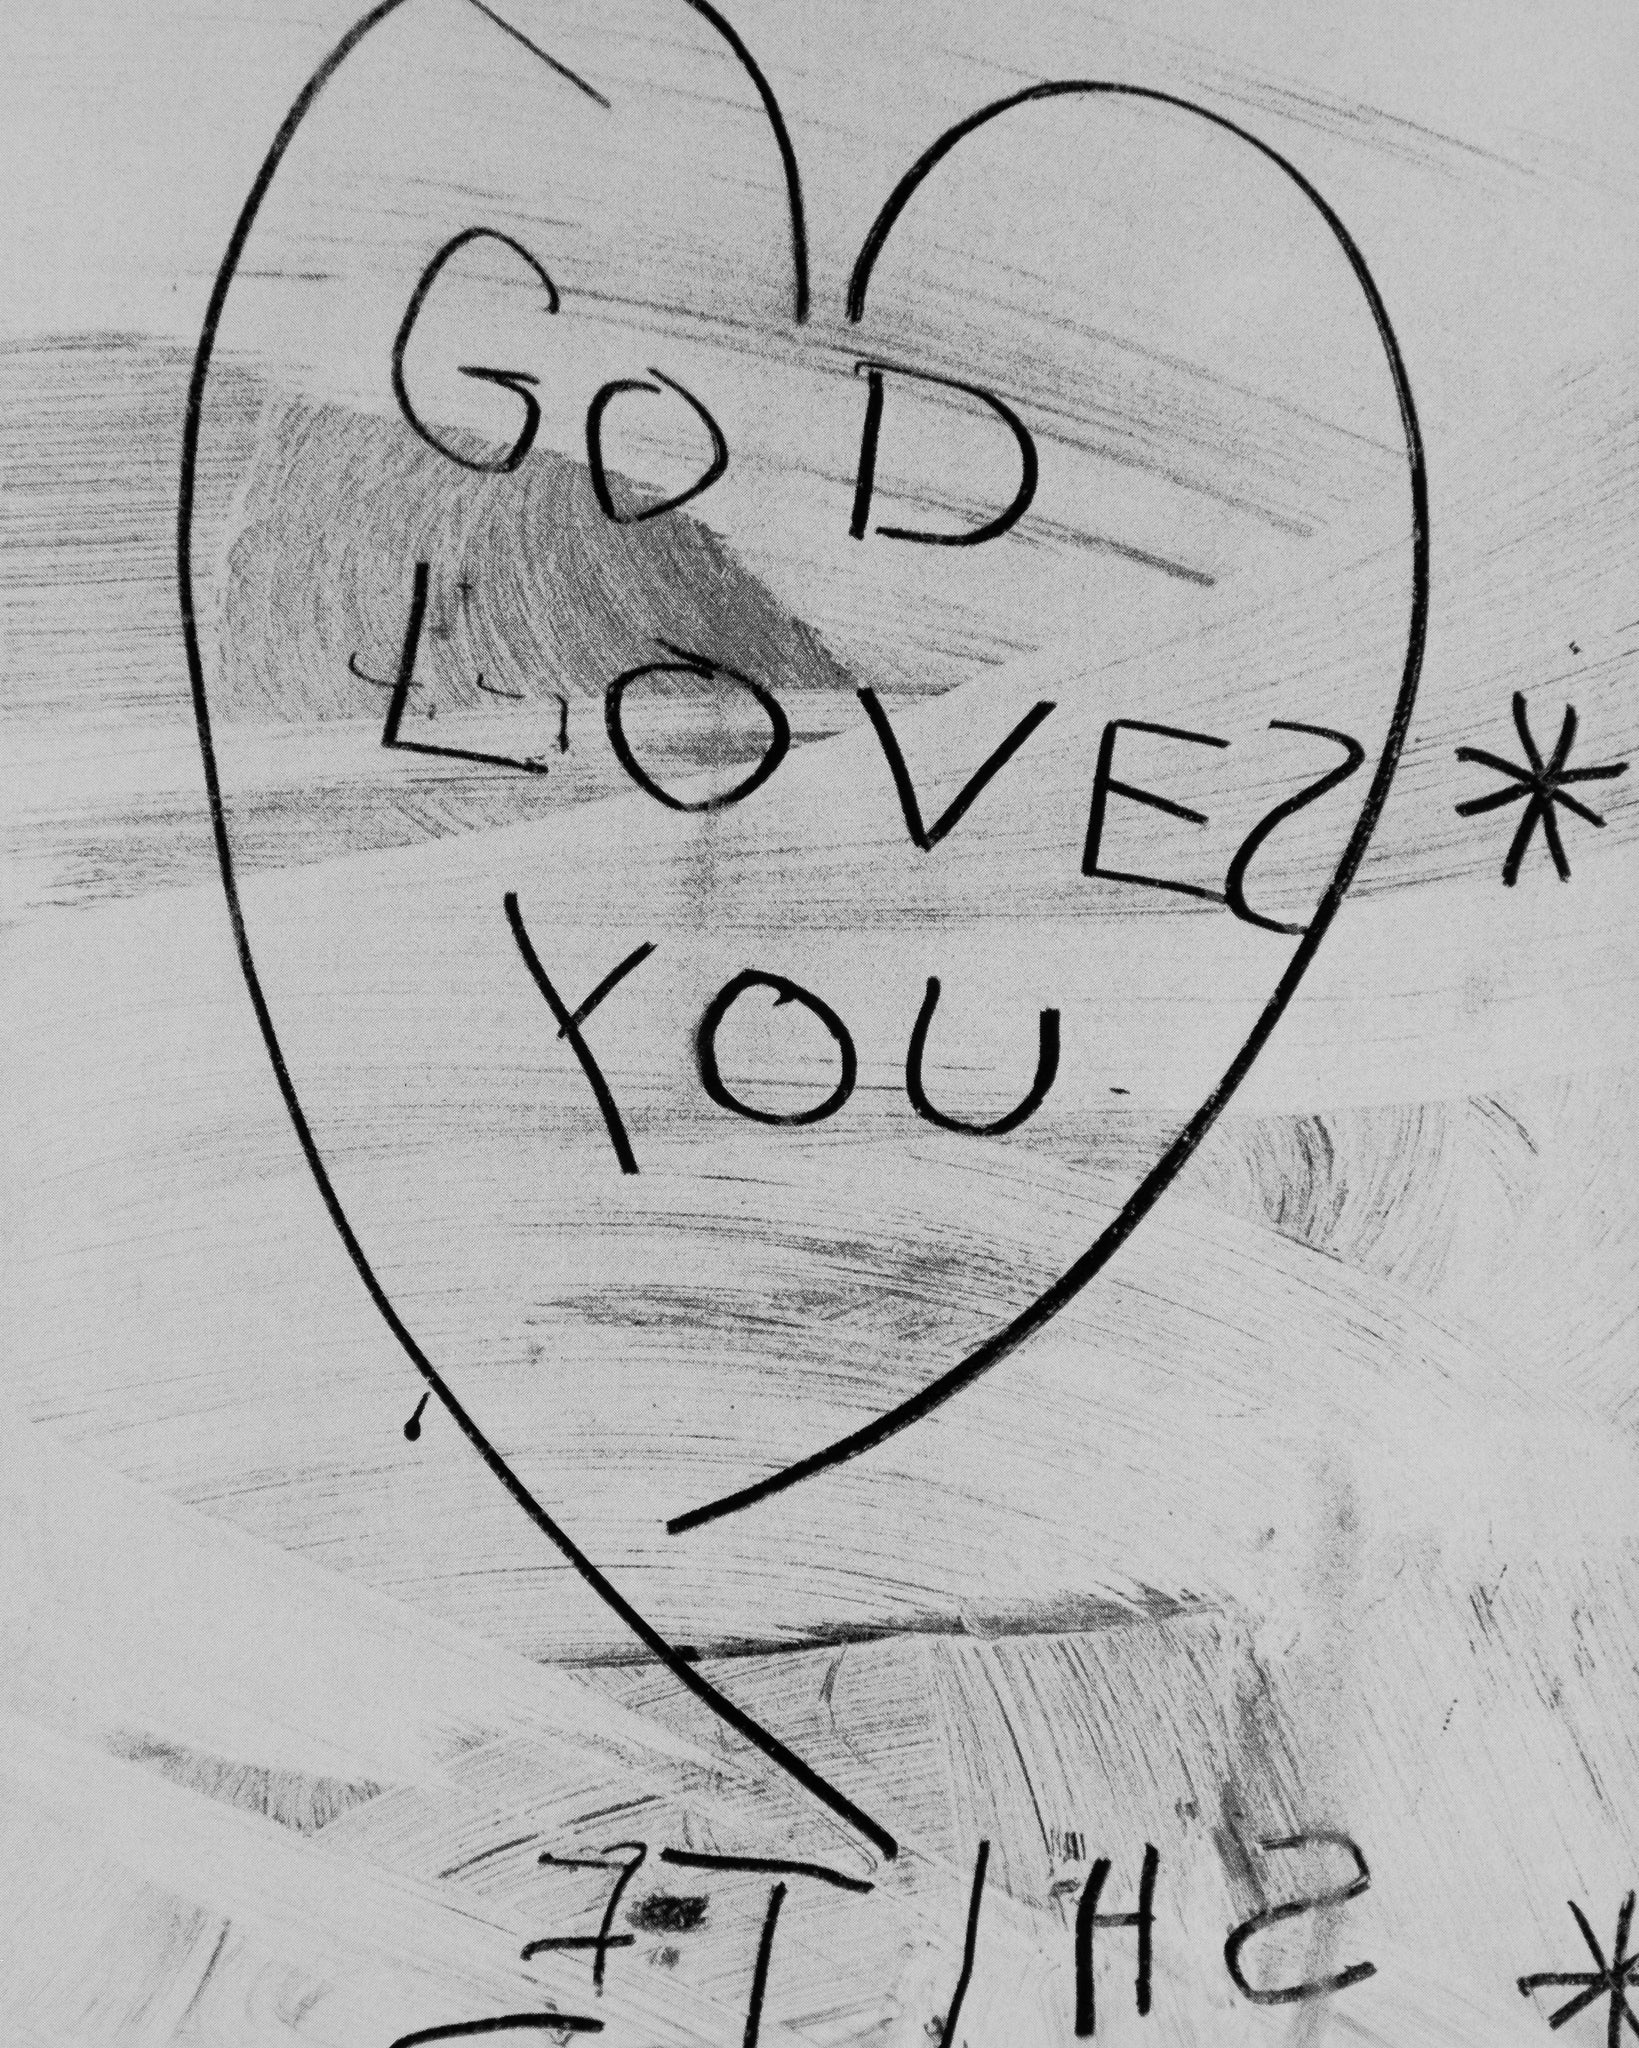 GOD
LOVES *
YOU